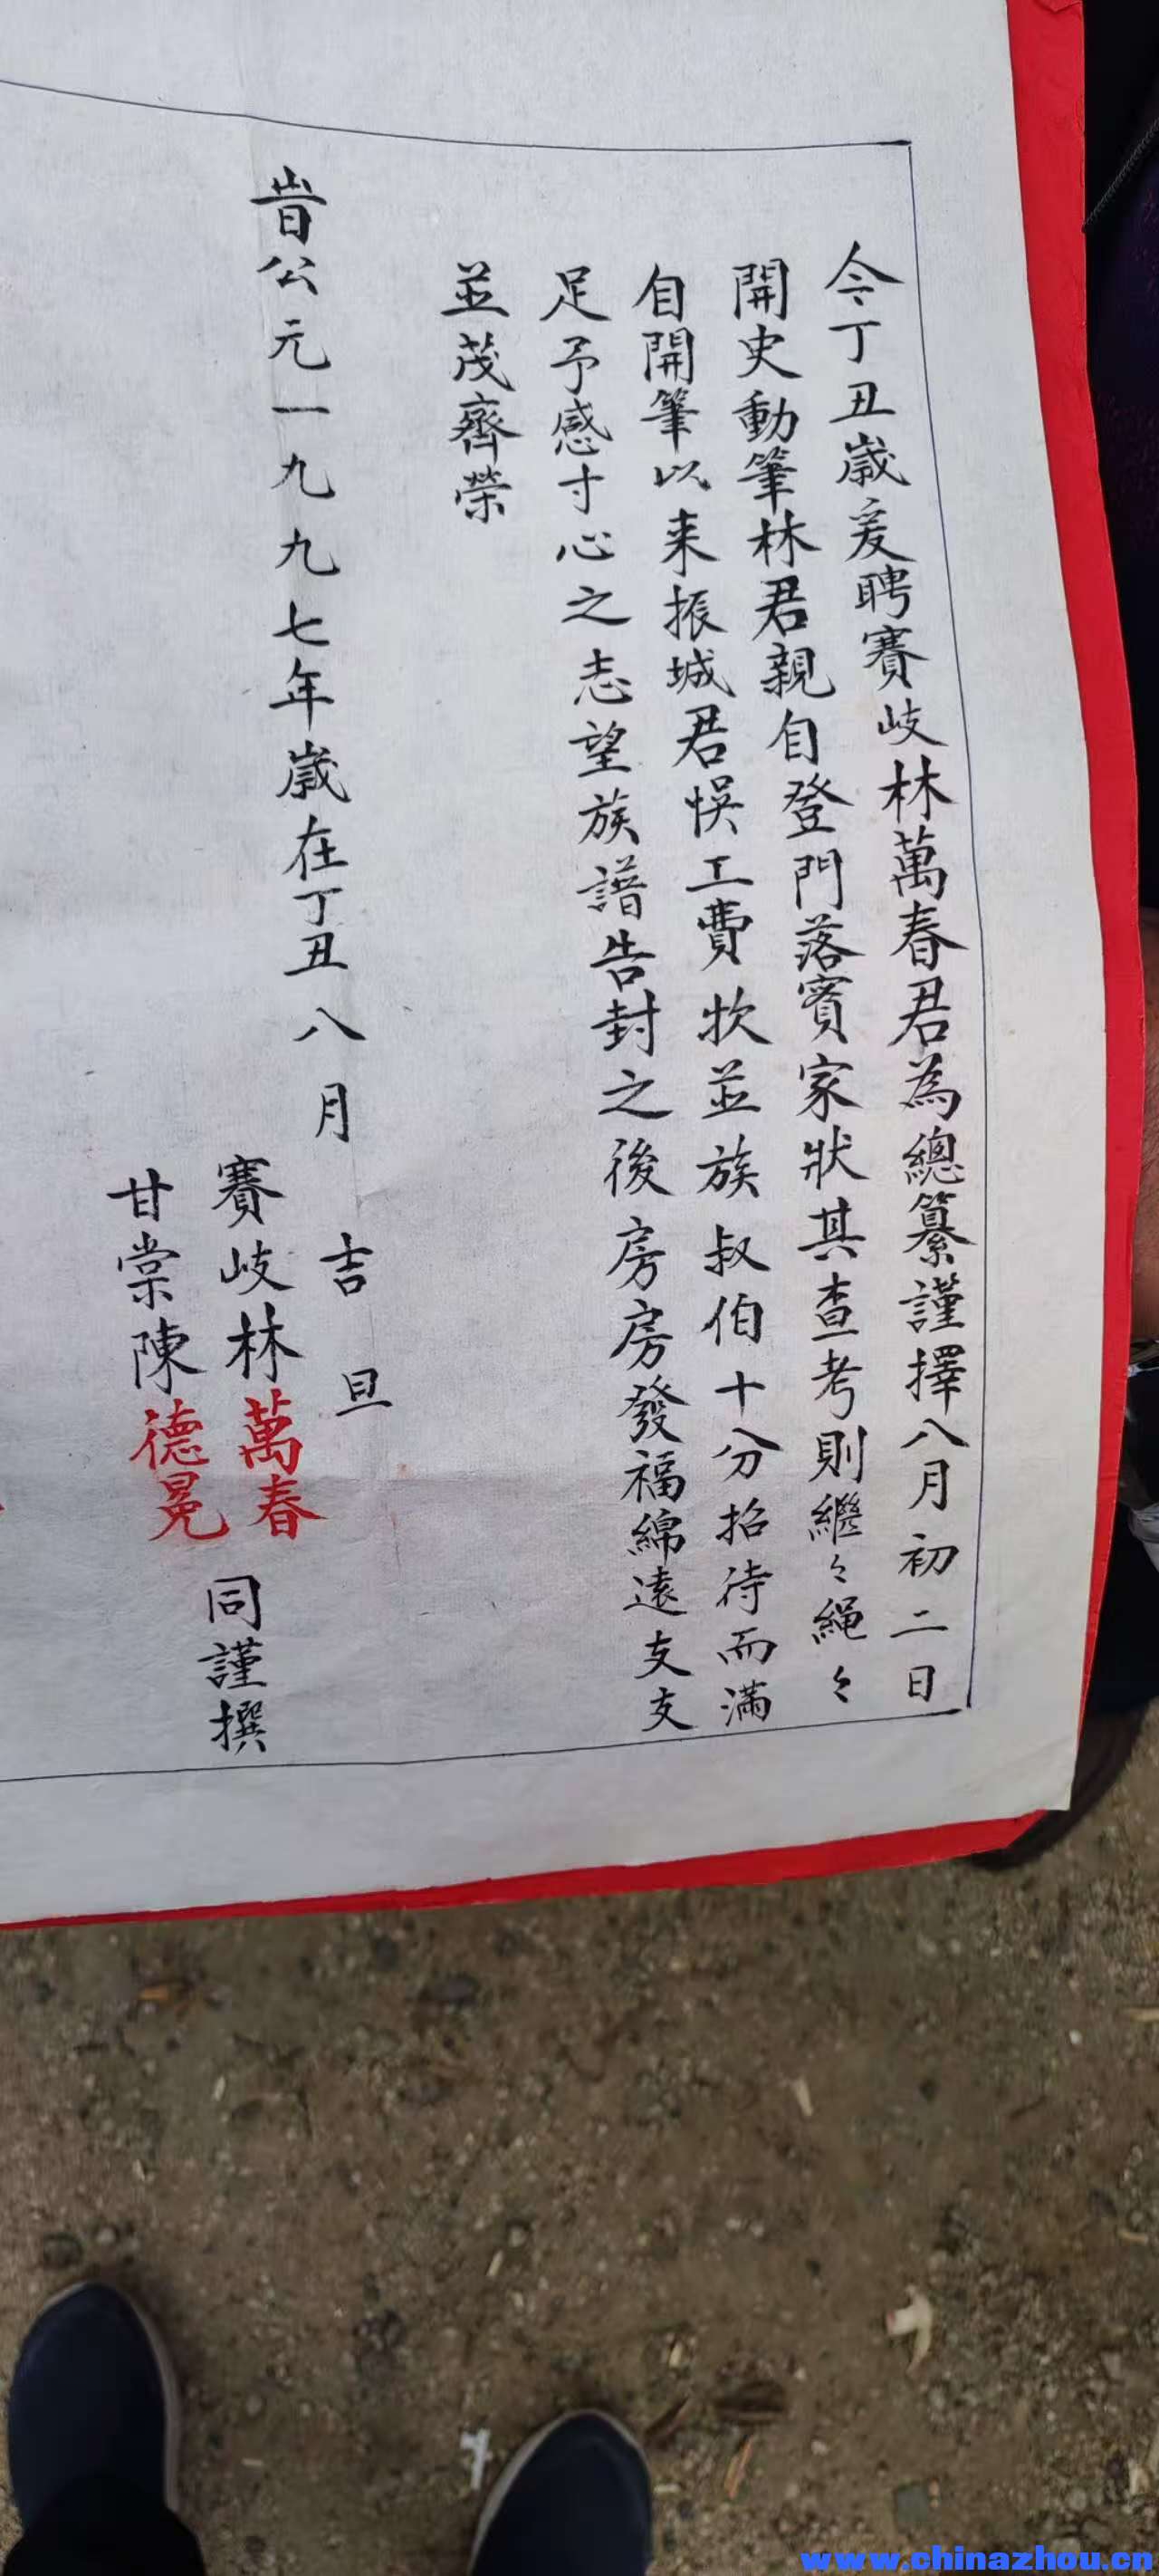 今丁丑歲爰聘賽岐林萬春君為總纂謹擇八月初二日
開史動筆林君親自登門落賓家狀其查考則繼々繩々
自開筆以来振城君悞工費牧並族叔伯十分招待而滿
足予感寸心之志望族譜告封之後房房發福綿遠支支
並茂齊榮
旹公元一九九七年歲在丁丑八月吉旦
賽岐林萬春
甘棠陳德晃
同謹撰
www.chinazhou.cn